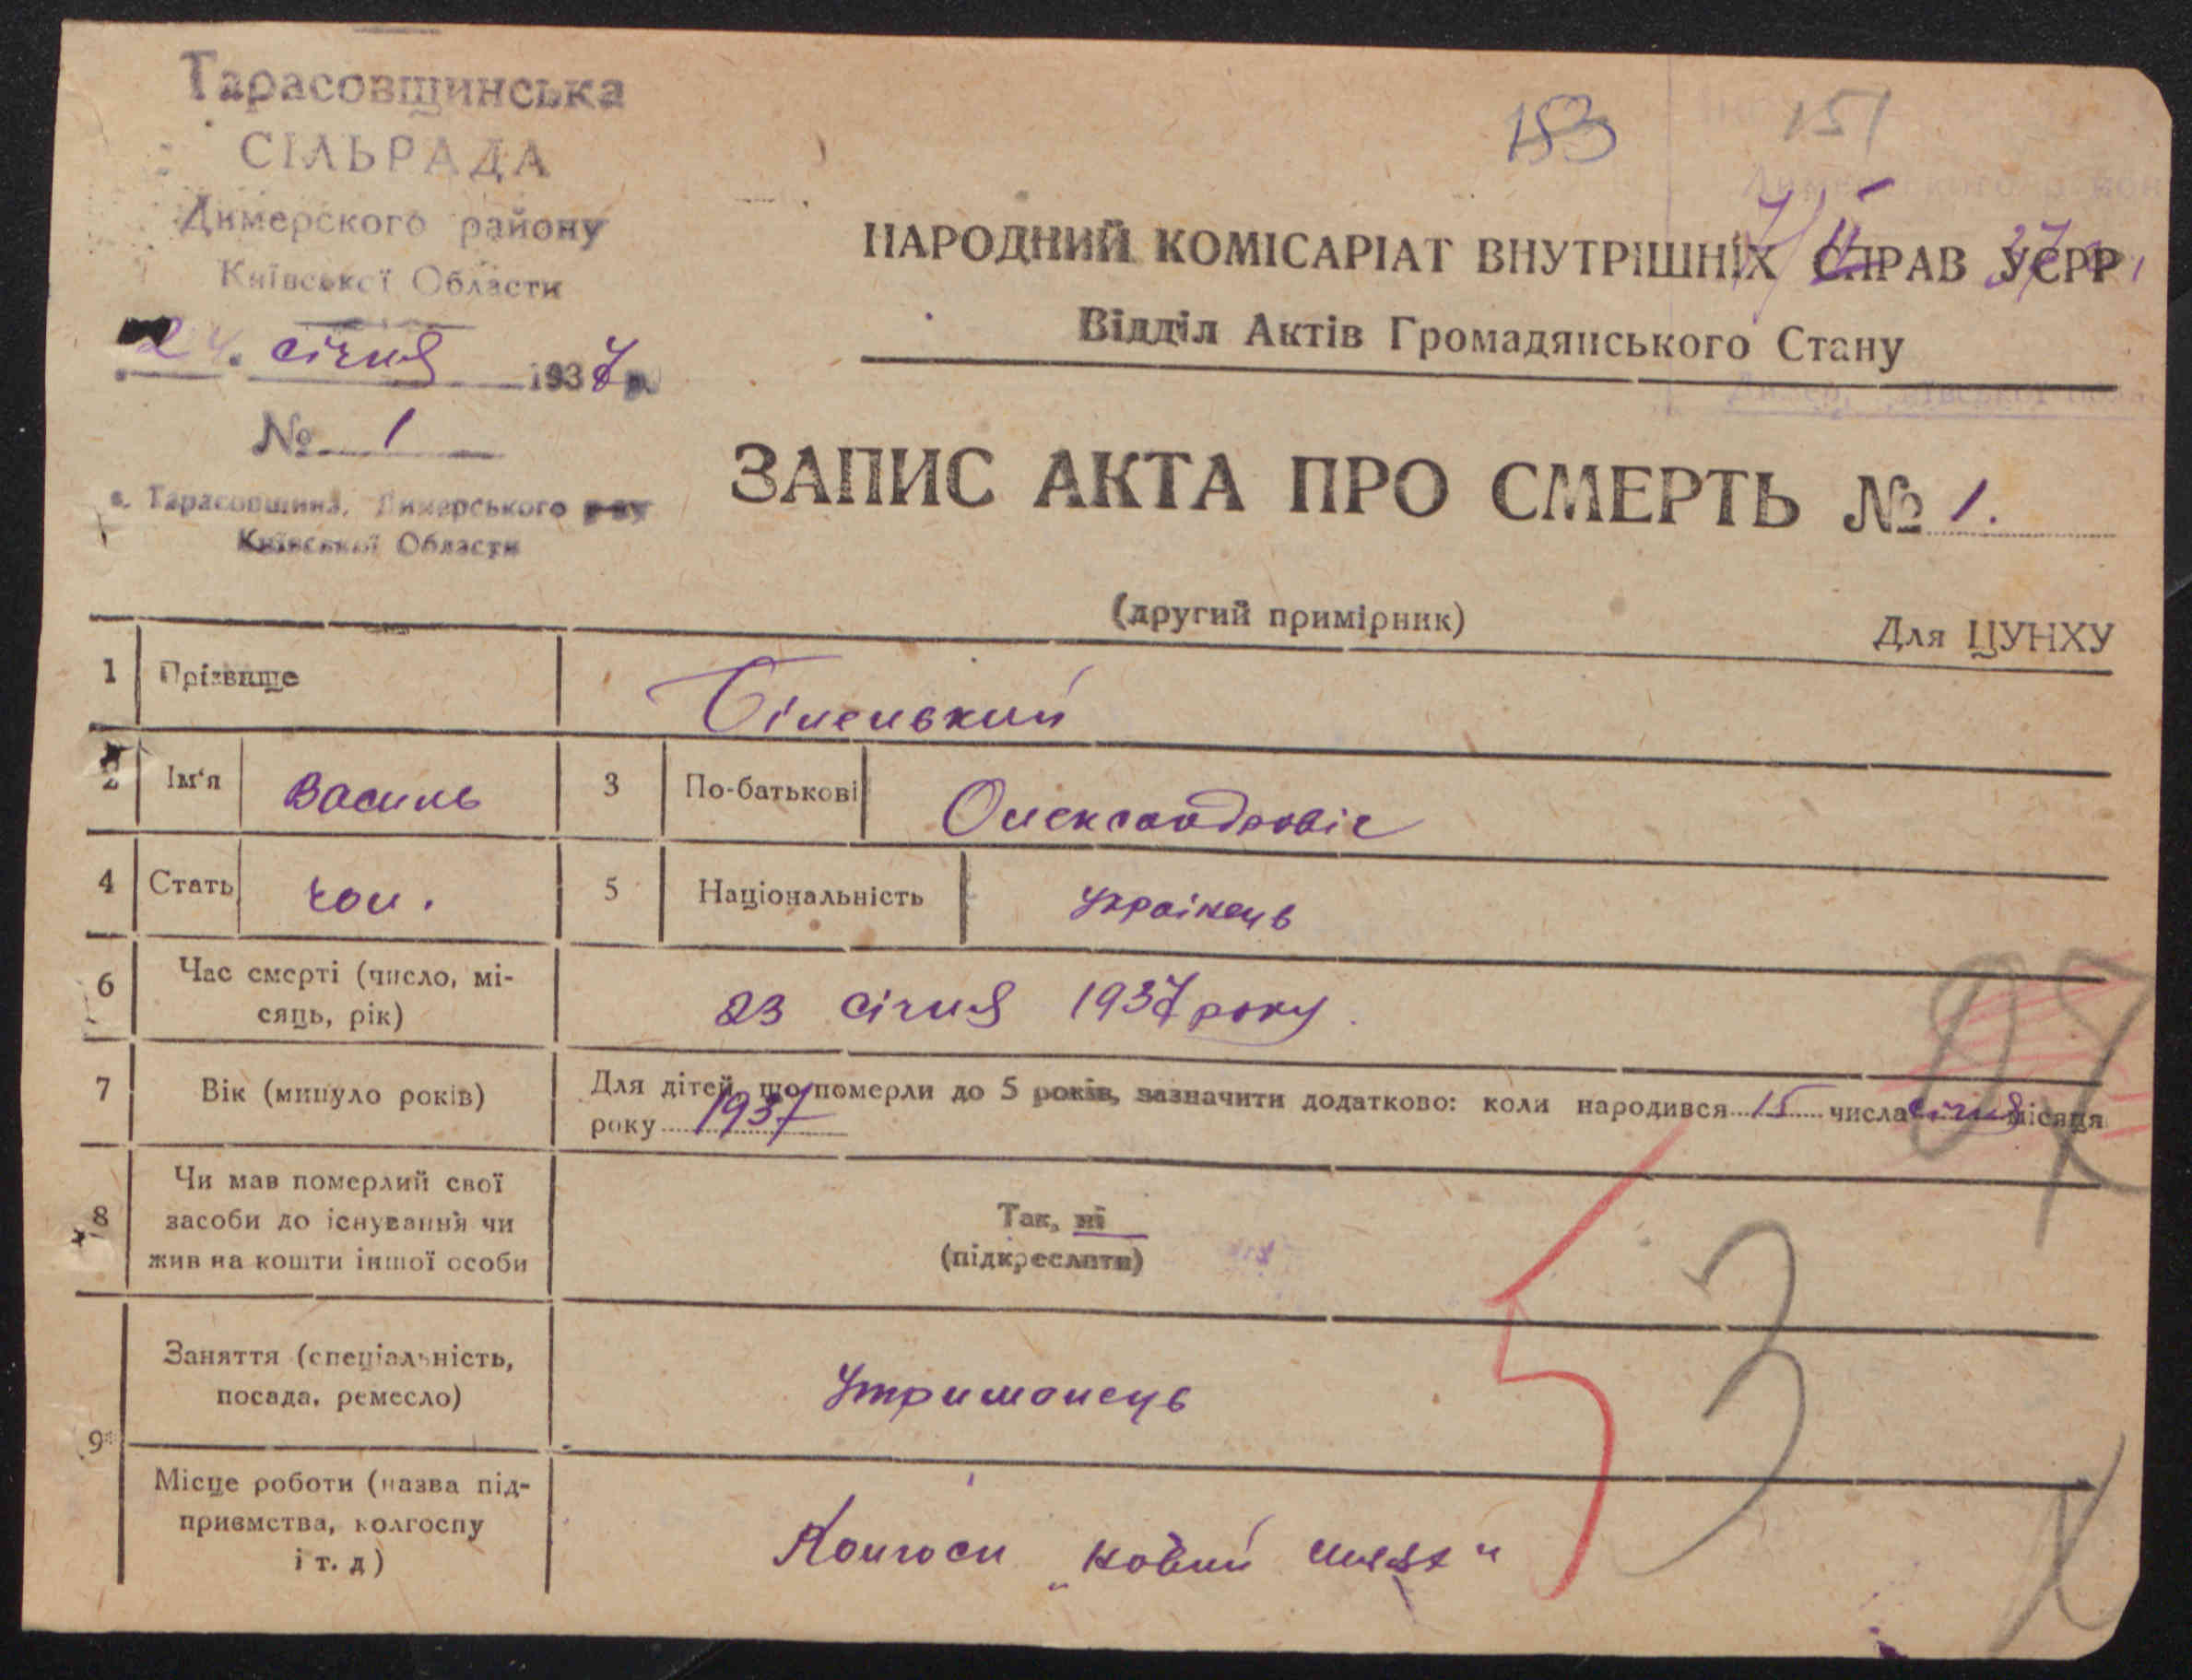 Тарасовщинська
СІЛЬРАДА
Димерского району
Київської Области
24. січня 1937 р.
№ 1
с. Тарасовщина, Димерського р-ну
Київської Области
153 151
НАРОДНИЙ КОМІСАРІАТ ВНУТРІШНІХ СПРАВ УСРР
Відділ Актів Громадянського Стану
ЗАПИС АКТА ПРО СМЕРТЬ № 1.
(другий примірник)
Для ЦУНХУ
1 Прізвище Біленький
2 Ім'я Василь 3 По-батькові Олександровіч
4 Стать чол. 5 Національність українець
6 Час смерті (число, мі-
сяць, рік) 23 січня 1937 року.
7 Вік (минуло років) Для дітей, що померли до 5 років, зазначити додатково: коли народився 15 числа січня місяця
року 1937
8 Чи мав померлий свої
засоби до існування чи
жив на кошти іншої особи
Так, ні
(підкреслити)
9 Заняття (спеціальність,
посада, ремесло) Утриманець
Місце роботи (назва під-
приємства, колгоспу
і т. д) Колгосп „новий шлях"